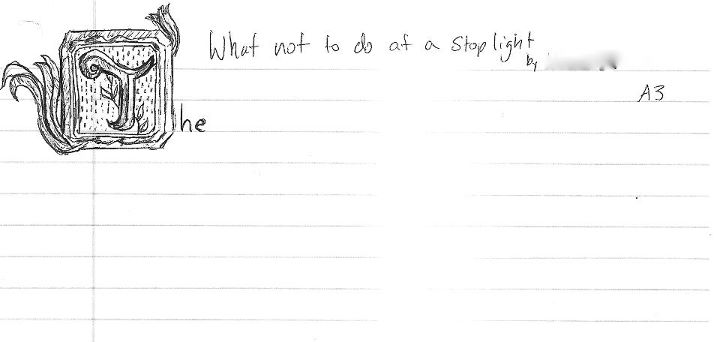 What not to do at a Stop light
by
A3
The